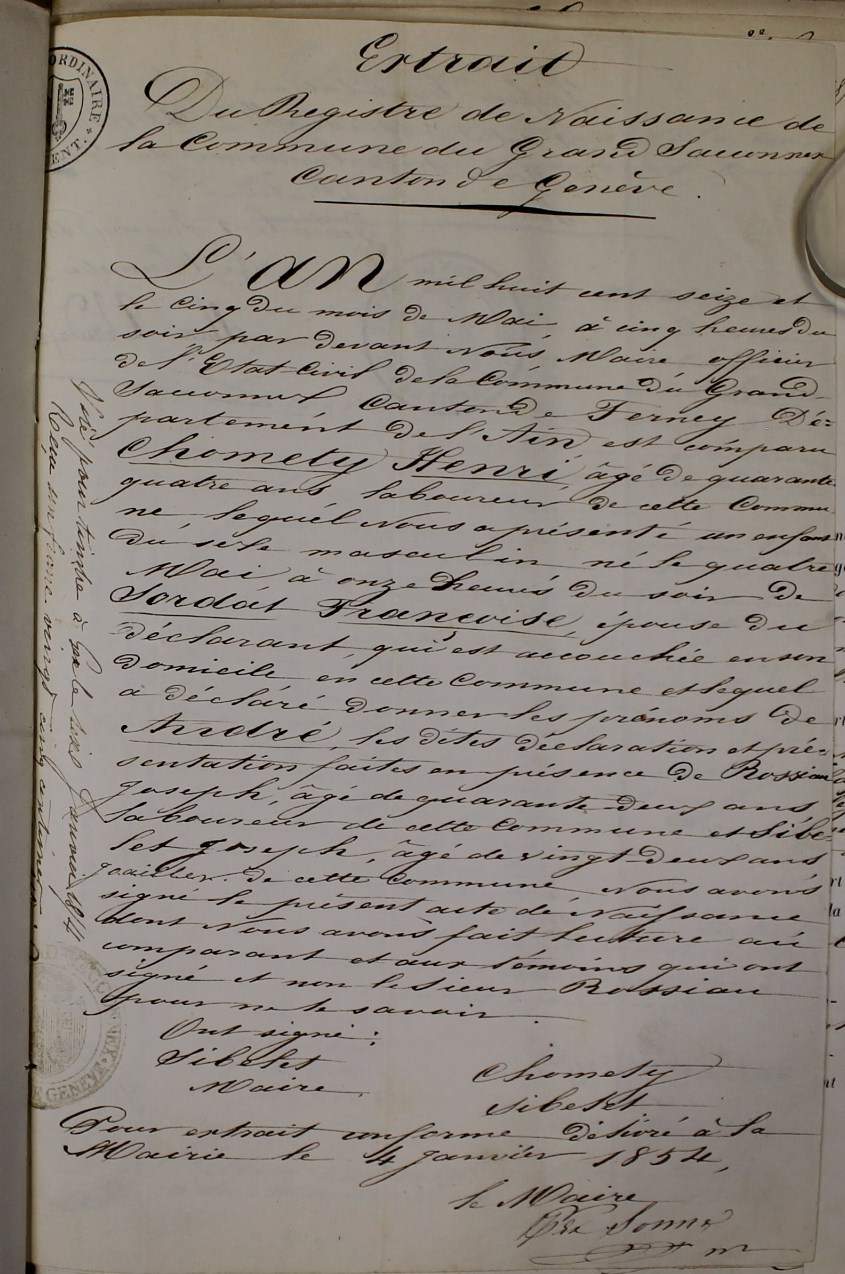 ORDINAIRE
ENT.
Extrait
Du Registre de Naissance de
la Commune du Grand Saconnex
Canton de Genève.
L'an mil huit cent seize et
le cinq du mois de Mai, à cinq heures du
soir par devant Nous Maire officier
de l'Etat Civil de la Commune du Grand
Saconnex Canton de Ferney Dé=
partement de l'Ain est comparu
Chomety Henri, âgé de quarante
quatre ans laboureur de cette Commu
ne lequel Nous a présenté un enfant
du sexe masculin né le quatre
Mai à onze heures du soir de
Sordat Françoise, épouse du
déclarant, qui est accouchée en son
domicile en cette Commune et lequel
a déclaré donner les prénoms de
André, les dites déclaration et pré=
sentation faites en présence de Rossiau
Joseph, âgé de quarante deux ans
laboureur de cette Commune et Sibe=
let Joseph, âgé de vingt deux ans
de cette Commune Nous avons
signé le présent acte de Naissance
dont Nous avons fait lecture au
comparant et aux témoins qui ont
signé et non le sieur Rossiau
pour ne le savoir.
Ont signé:
Sibelet
Maire
Chomety
Sibelet
Pour extrait conforme délivré à la
Mairie le 4 Janvier 1854,
le Maire
Visé pour timbre à Gex le Janvier 1854
Reçu un franc vingt cinq centimes